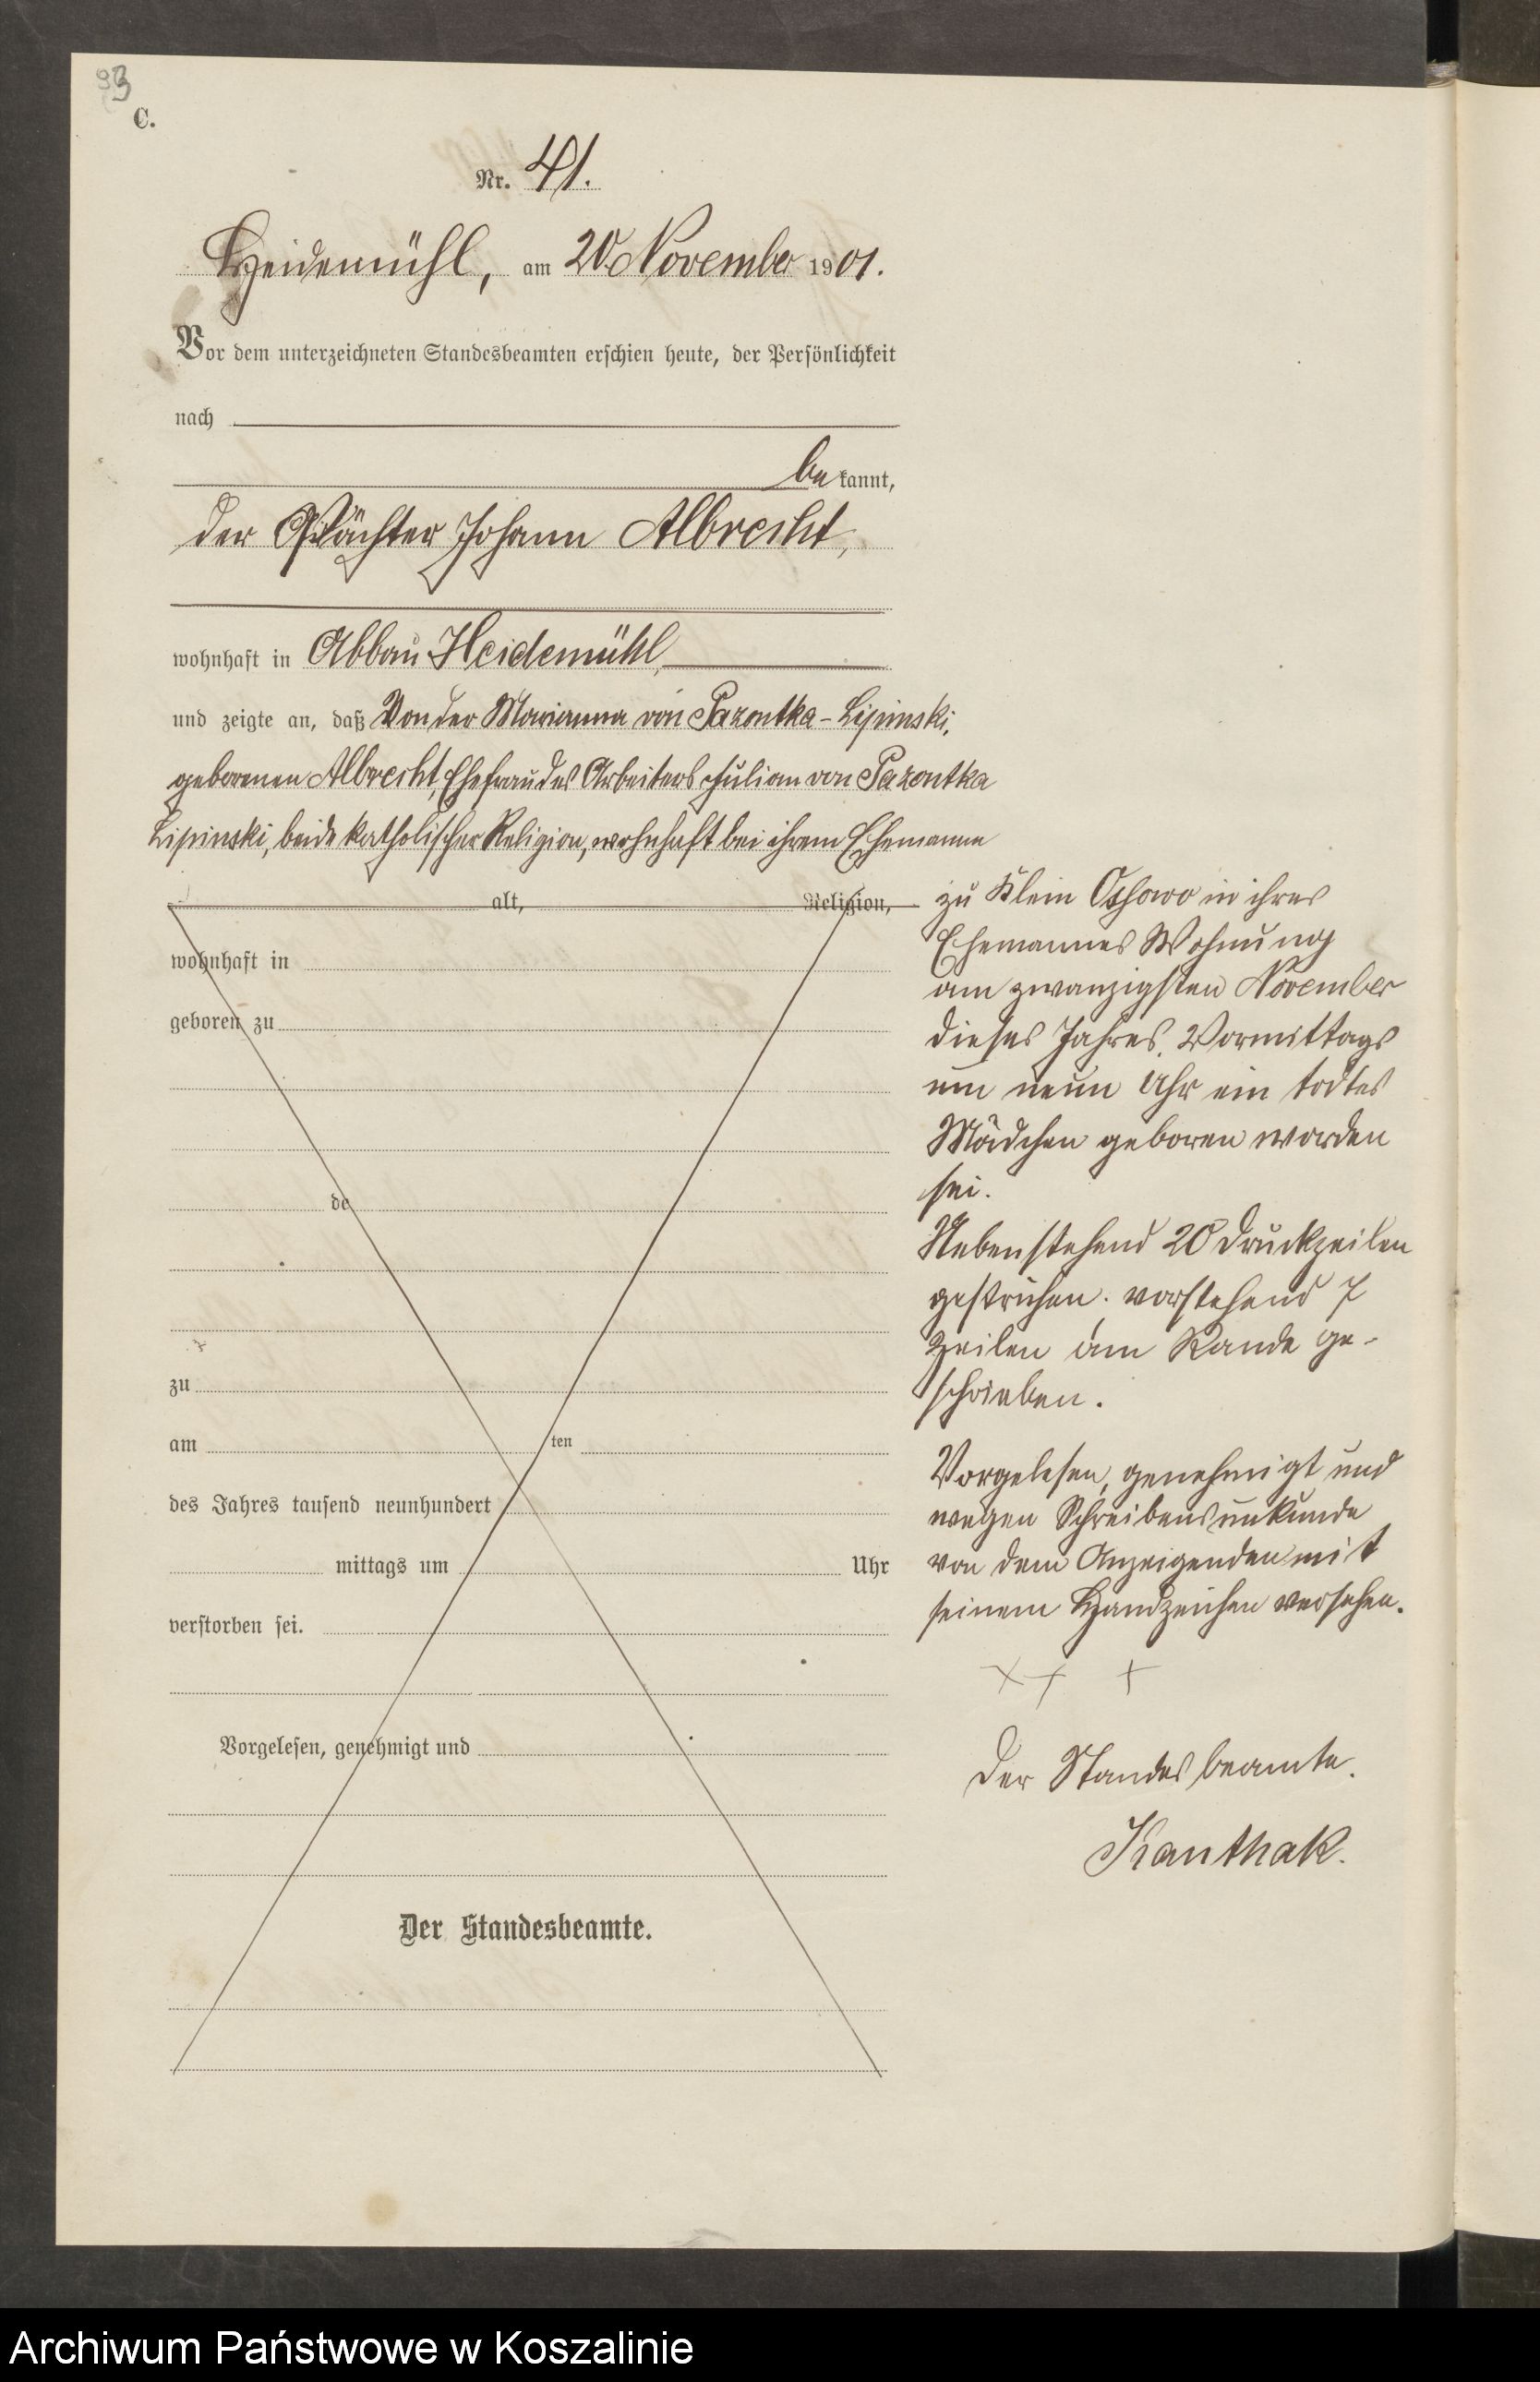 93
C.
Nr. 41.
Heidemühl, am 20. November 1901.
Vor dem unterzeichneten Standesbeamten erschien heute, der Persönlichkeit
nach
bekannt,
der Pächter Johann Albrecht,
wohnhaft in Abbau Heidemühl,
und zeigte an, daß Von der Marianna von Pazontka-Lipinski,
geborenen Albrecht, Ehefrau des Arbeiters Julian von Pazontka
Lipinski, beide katholischer Religion, wohnhaft bei ihrem Ehemanne
alt, Religion,
wohnhaft in
geboren zu
de
zu
am ten
des Jahres tausend neunhundert
mittags um Uhr
verstorben sei.
Vorgelesen, genehmigt und
Der Standesbeamte.
zu Klein Oschowo in ihres
Ehemannes Wohnung
am zwanzigsten November
dieses Jahres, Vormittags
um neun Uhr ein todtes
Mädchen geboren worden
sei.
Nebenstehend 20 Druckzeilen
gestrichen. vorstehend 7
Zeilen am Rande ge-
schrieben.
Vorgelesen, genehmigt und
wegen Schreibensunkunde
von dem Anzeigenden mit
seinem Handzeichen versehen.
+ + +
Der Standesbeamte.
Kanthak.
Archiwum Państwowe w Koszalinie